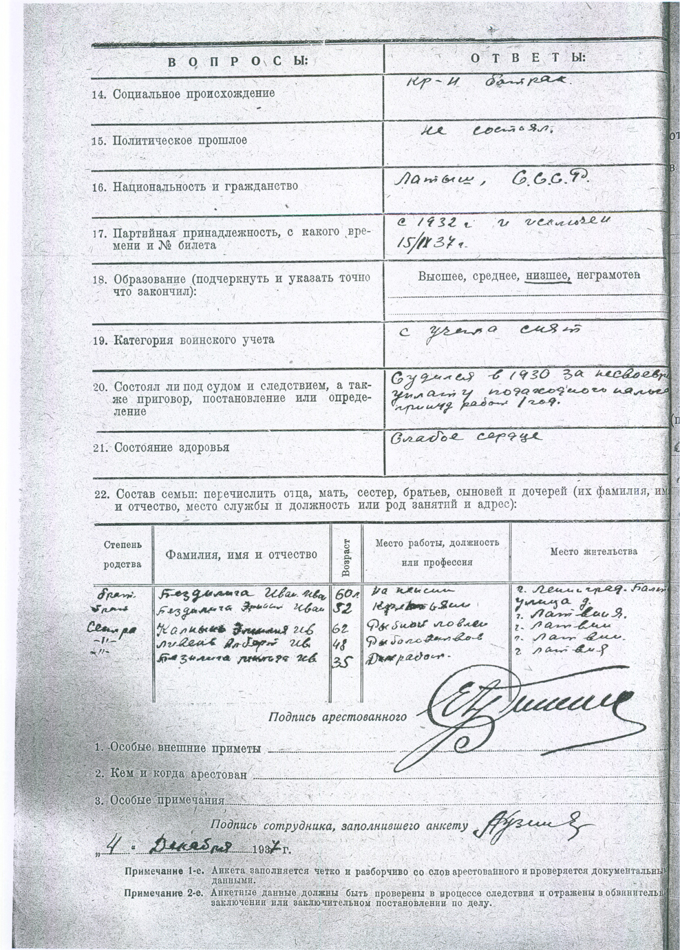 ВОПРОСЫ: ОТВЕТЫ:
14. Социальное происхождение кр-н батрак
15. Политическое прошлое не состоял.
16. Национальность и гражданство Латыш, С.С.С.Р.
17. Партийная принадлежность, с какого вре- с 1932 г и исключен
мени и № билета 15/IX 37 г.
18. Образование (подчеркнуть и указать точно Высшее, среднее, низшее, неграмотен
что закончил):
19. Категория воинского учета с учета снят
20. Состоял ли под судом и следствием, а так- Судился в 1930 за несвоевр
же приговор, постановление или опреде- уплату подоходного налога
ление принуд работ 1 год.
21. Состояние здоровья Слабое сердце
22. Состав семьи: перечислить отца, мать, сестер, братьев, сыновей и дочерей (их фамилия, им
и отчество, место службы и должность или род занятий и адрес):
Степень родства Фамилия, имя и отчество Возраст Место работы, должность или профессия Место жительства
брат Иван Ив 60 л на пенсии г. Ленинград.
улица д.
брат Иван 52 г. Латвия.
Сестра Ив 62 Рыбной ловлей г. Латвии
-"- Альберт Ив 48 г. Латвии.
-"- Ив 35 г Латвия
Подпись арестованного
1. Особые внешние приметы
2. Кем и когда арестован
3. Особые примечания
Подпись сотрудника, заполнившего анкету
„4" Декабря 1937 г.
Примечание 1-е. Анкета заполняется четко и разборчиво со слов арестованного и проверяется документальны
данными.
Примечание 2-е. Анкетные данные должны быть проверены в процессе следствия и отражены в обвинитель
заключении или заключительном постановлении по делу.